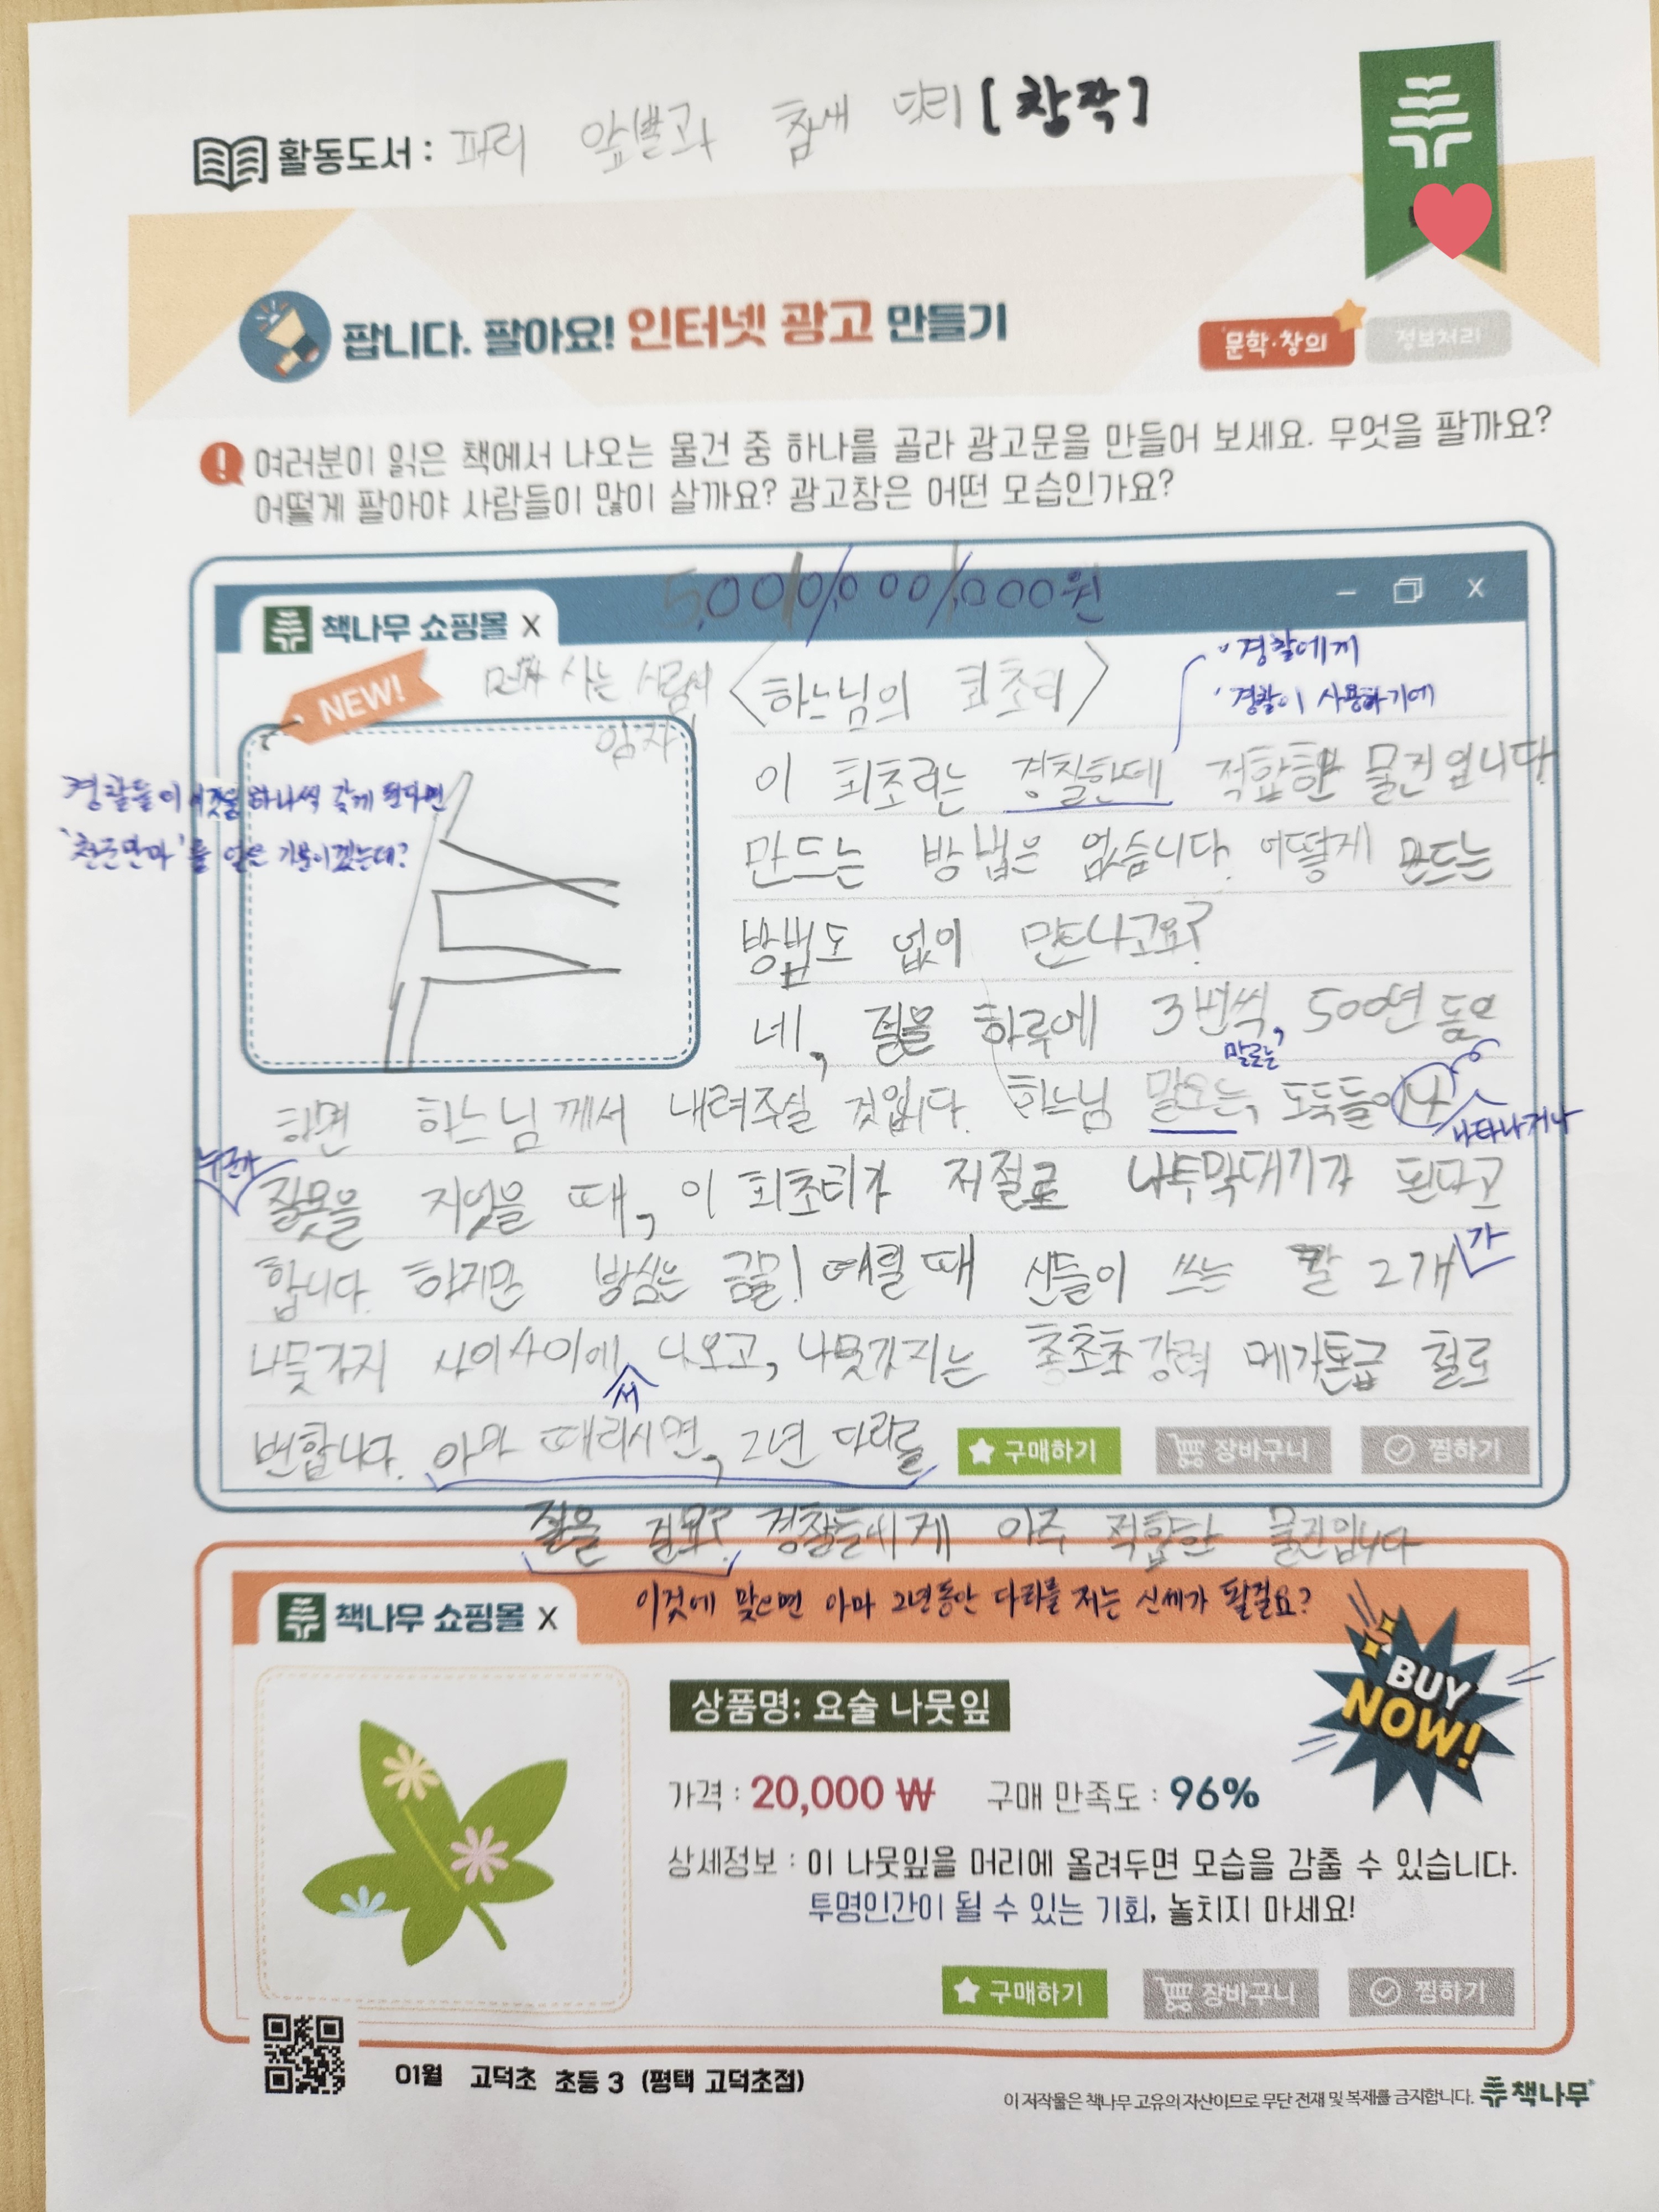 활동도서 : 파리 앞발과 참새 다리 [창작]
팝니다. 팔아요! 인터넷 광고 만들기
문학·창의
정보처리
여러분이 읽은 책에서 나오는 물건 중 하나를 골라 광고문을 만들어 보세요. 무엇을 팔까요?
어떻게 팔아야 사람들이 많이 살까요? 광고창은 어떤 모습인가요?
5,000,000,000원
책나무 쇼핑몰 X
NEW!
먼저 사는 사람이
임자!
<하느님의 회초리>
· 경찰에게
· 경찰이 사용하기에
이 회초리는 경찰한테 적합한 물건입니다.
경찰들이 이것을 하나씩 갖게 된다면
'천군만마'를 얻은 기분이겠는데?
만드는 방법은 없습니다. 어떻게 만드는
방법도 없이 만드냐고요?
네, 절을 하루에 3번씩, 500년 동안
말로는
하면 하느님께서 내려주실 것입니다. 하느님 말오는, 도둑들이나
나타나거나
누군가
잘못을 지었을 때, 이 회초리가 저절로 나무막대기가 된다고
합니다. 하지만 방심은 금물! 때릴 때 신들이 쓰는 칼 2개
가
나뭇가지 사이사이에 나오고, 나뭇가지는 초초초강력 메가톤급 철로
서
변합니다. 아마 때리시면, 2년 다리를
구매하기
장바구니
찜하기
절을 걸요? 경찰들에게 아주 적합한 물건입니다
책나무 쇼핑몰 X
이것에 맞으면 아마 2년동안 다리를 저는 신세가 될걸요?
BUY
NOW!
상품명: 요술 나뭇잎
가격 : 20,000 ₩ 구매 만족도 : 96%
상세정보 : 이 나뭇잎을 머리에 올려두면 모습을 감출 수 있습니다.
투명인간이 될 수 있는 기회, 놓치지 마세요!
구매하기
장바구니
찜하기
01월 고덕초 초등 3 (평택 고덕초점)
이 저작물은 책나무 고유의 자산이므로 무단 전재 및 복제를 금지합니다. 책나무